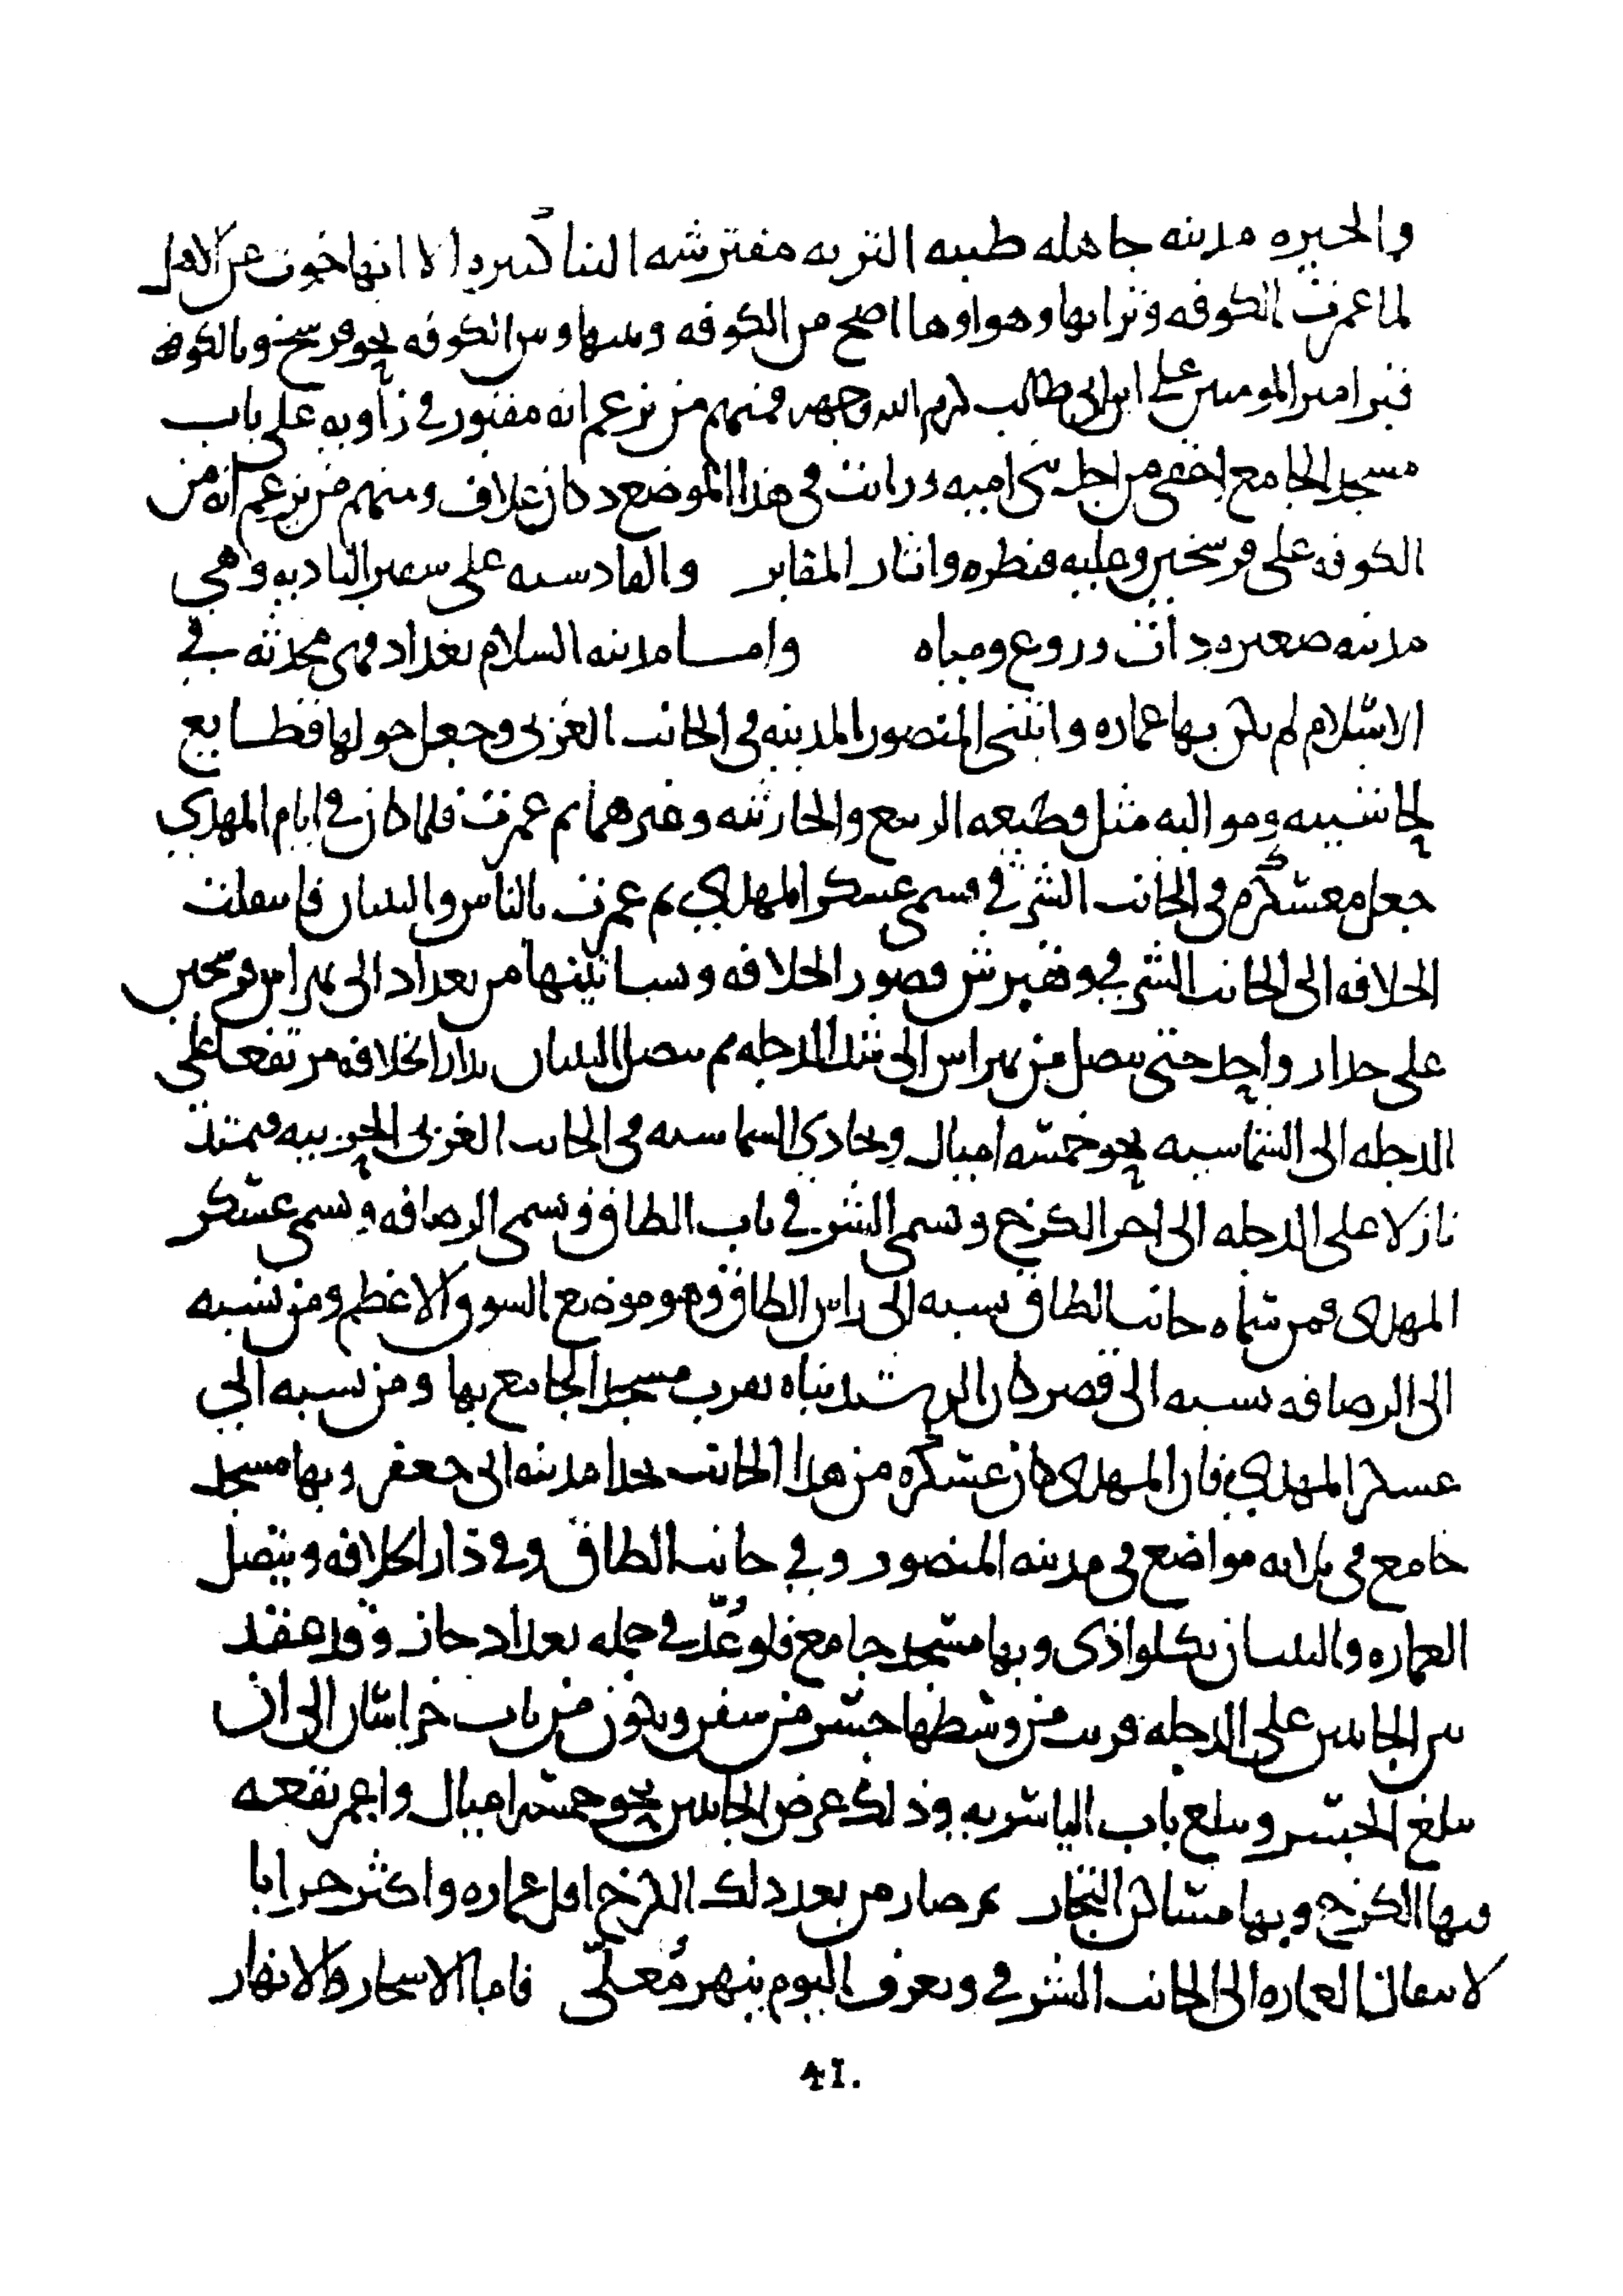 والحيره مدينه جاهليه طيبه التربه مفترشه البنا كبيره الا انها خوت عن الاهل
لما عمرت الكوفه وترابها وهواوها اصح من الكوفه وبينها وبين الكوفه نحو فرسخ وبالكوفه
قبر امير المومنين علي ابن ابي طالب كرم الله وجهه فمنهم من يزعم انه مقبور في زاويه على باب
مسجد الجامع اخفي من اجل بني اميه ورايت في هذا الموضع دكان علاف ومنهم من يزعم انه من
الكوفه على فرسخين وعليه قنطره واثار المقابر والقادسيه على شفير الباديه وهي
مدينه صغيره ذات زروع ومياه وامــا مدينه السلام بغداد فهي محدثه في
الاسلام لم يكن بها عماره وابتنى المنصور المدينه في الجانب الغربي وجعل حولها قطــايع
لحاشيته ومواليه مثل قطيعه الربيع والحارثيه وغيرهما ثم عمرت فلما كان في ايام المهدي
جعل معسكره في الجانب الشرقي فسمي عسكر المهدي ثم عمرت بالناس والبنيان فانتقلت
الخلافه الى الجانب الشرقي وتفترش قصور الخلافه وبساتينها من بغداد الى نهر بين فرسخين
على جدار واحد حتى يتصل من نهر بين الى شط الدجله ثم يتصل البنيان بدار الخلافه مرتفعا على
الدجله الى الشماسيه نحو خمسه اميال ويحاذي الشماسيه في الجانب الغربي الحربيه فيمتد
نازلا على الدجله الى اخر الكرخ ويسمى الشرقي باب الطاق ويسمى الرصافه ويسمى عسكر
المهدي فمن سماه جانب الطاق نسبه الى راس الطاق وهو موضع السوق الاعظم ومن نسبه
الى الرصافه نسبه الى قصر كان الرشيد بناه بقرب مسجد الجامع بها ومن نسبه الى
عسكر المهدي فان المهدي كان عسكره من هذا الجانب بحذا مدينه ابي جعفر وبها مسجد
جامع في ثلاثه مواضع في مدينه المنصور وفي جانب الطاق وفي دار الخلافه ويتصل
العماره والبنيان بكلواذى وبها مسجد جامع فلو عُدّ في جمله بغداد جاز وقد عقد
بين الجانبين على الدجله قريب من وسطها جسر من سفن ويكون من باب خراسان الى ان
يبلغ الجسر ويبلغ باب الياسريه وذلك عرض الجانبين نحو خمسه اميال واعمر بقعه
فيها الكرخ وبها مساكن التجار ثم صار من بعد ذلك الكرخ اقل عماره واكثر خرابا
لانتقال العماره الى الجانب الشرقي ويعرف اليوم بنهر مُعلّى فاما الاشجار والانهار
41.